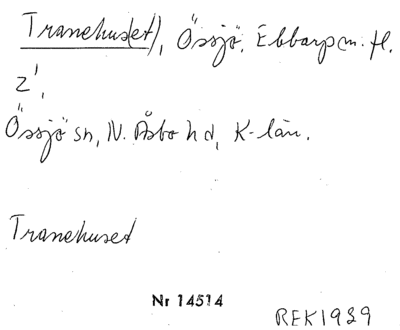 Tranehus(et), Össjö, Ebbarp m. fl.
2',
Össjö sn, N. Åsbo hd, K-län.
Tranehuset
Nr 14514
REK1939